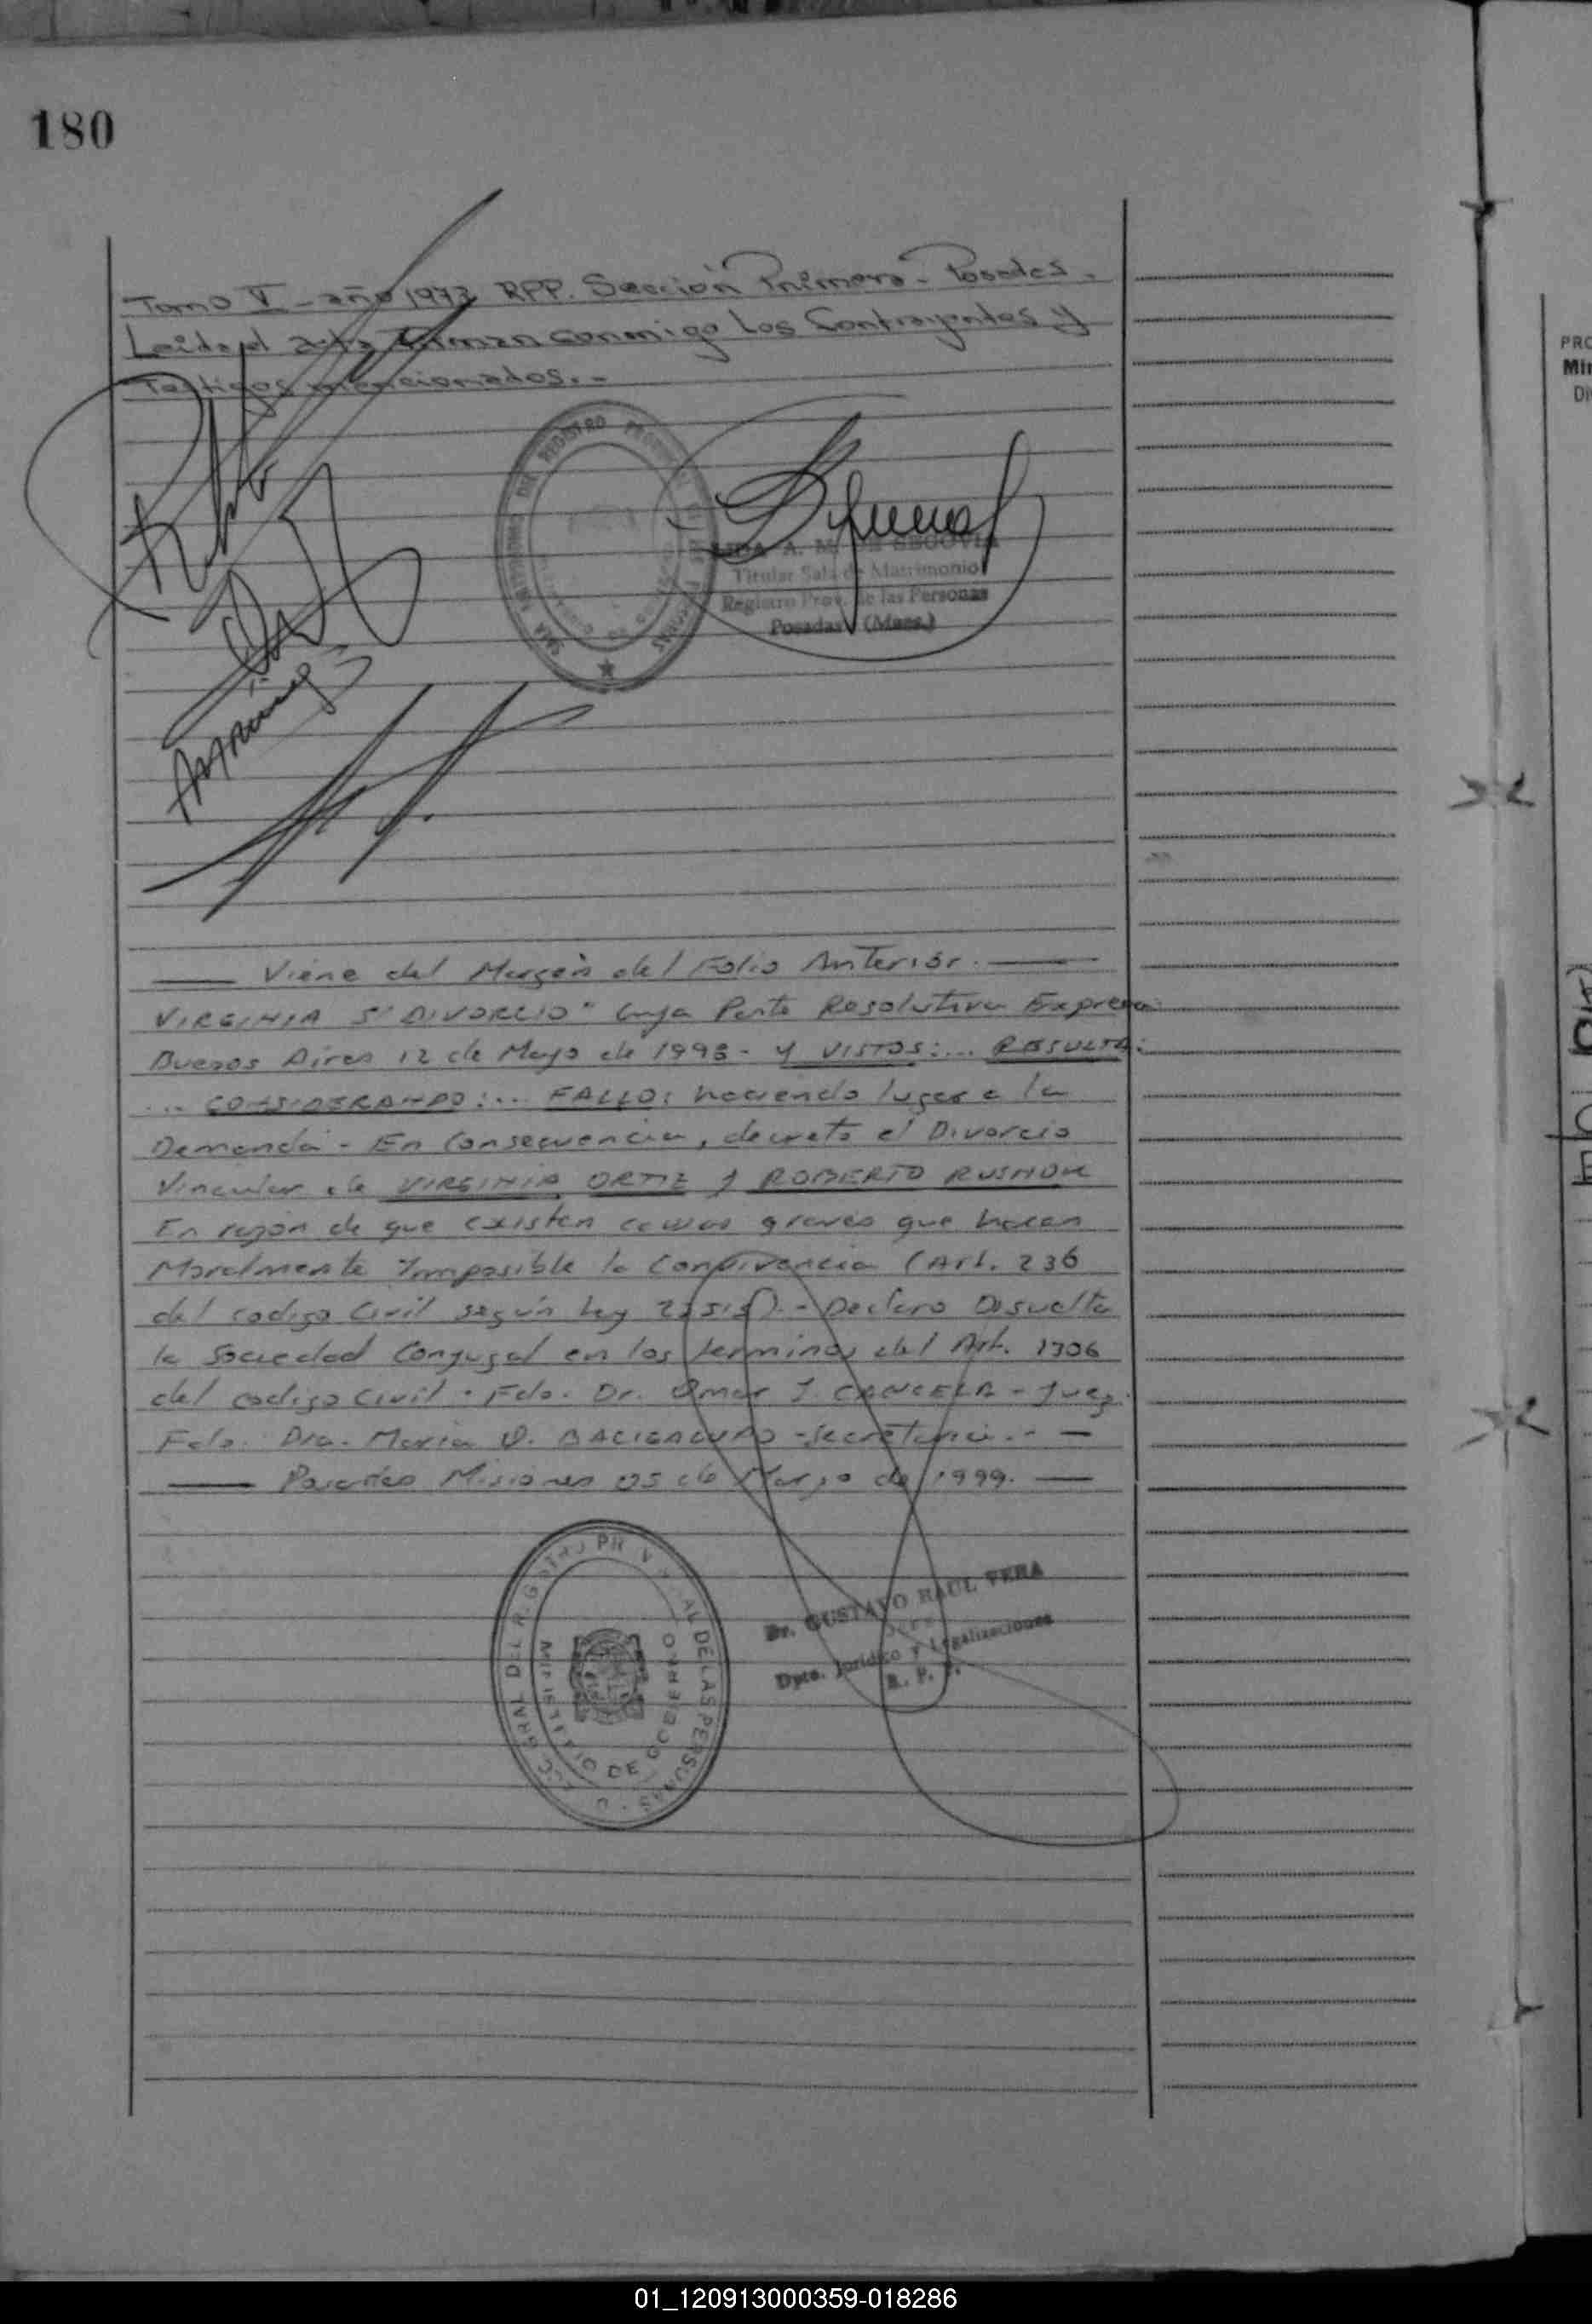 180
Tomo V - año 1973 RPP. Sección Primera - Posadas -
Leida el acta firman conmigo los Contrayentes y
Testigos mencionados. -
DEL REGISTRO
A. M. DE SEGOVIA
Titular Sala de Matrimonio
Registro Prov. de las Personas
Posadas (Mnes.)
Viene del Margen del Folio Anterior.
VIRGINIA S/ DIVORCIO" Cuya Parte Resolutiva Expresa:
Buenos Aires 12 de Mayo de 1998 - Y VISTOS:... RESULTA:
... CONSIDERANDO:... FALLO: haciendo lugar a la
Demanda - En Consecuencia, decreto el Divorcio
Vincular de VIRGINIA ORTIZ y ROBERTO
En razón de que existen causas graves que hacen
Moralmente Imposible la Convivencia (Art. 236
del codigo Civil según Ley 23515). - Declaro Disuelta
la Sociedad Conyugal en los terminos del Art. 1306
del codigo Civil. Fdo. Dr. Omar J. CANCELA - Juez.
Fdo. Dra. Maria - Secretaria. -
Posadas Misiones 05 de Marzo de 1999.
GRAL DEL REGISTRO PROVINCIAL DE LAS PERSONAS
MINISTERIO DE GOBIERNO
Dr. GUSTAVO RAUL VERA
JEFE
Dpto. Jurídico y Legalizaciones
R. P. P.
PRO
Min
Di
01_120913000359-018286